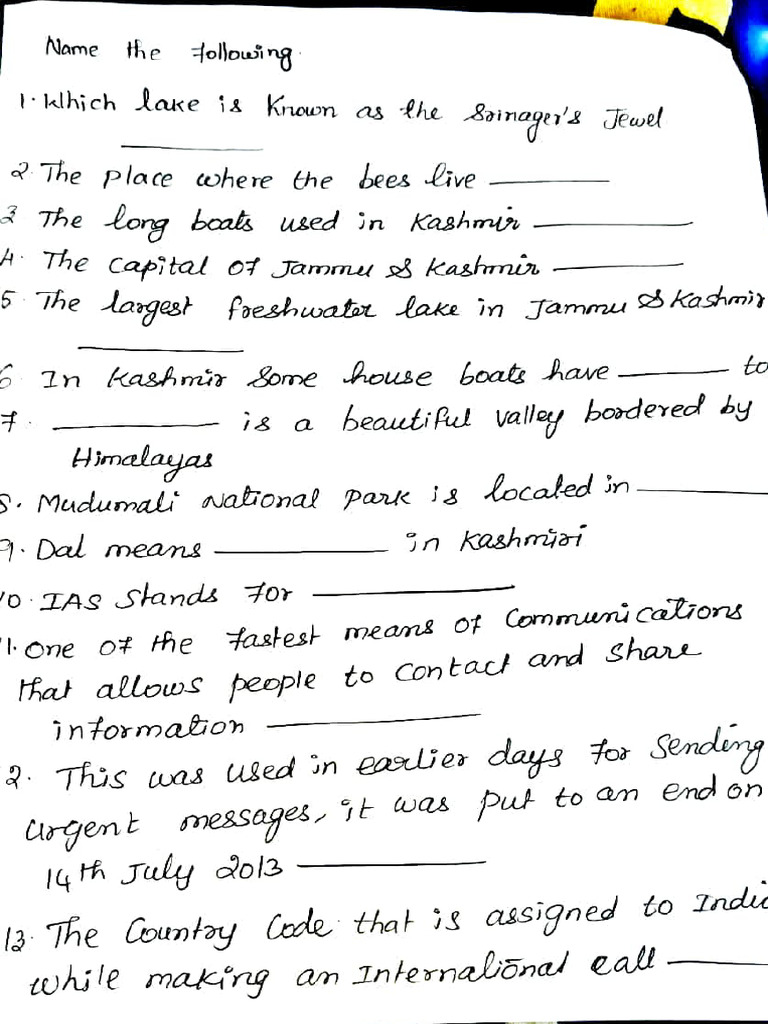 Name the following.
1. Which lake is known as the Srinager's Jewel
__________
2. The place where the bees live __________
3 The long boats used in Kashmir __________
4. The capital of Jammu & Kashmir __________
5 The largest freshwater lake in Jammu & Kashmir
__________
6 In Kashmir some house boats have __________ to
7. __________ is a beautiful valley bordered by
Himalayas
8. Mudumali National park is located in __________
9. Dal means __________ in Kashmiri
10. IAS stands for __________
11. One of the fastest means of communications
that allows people to contact and share
information __________
2. This was used in earlier days for sending
urgent messages, it was put to an end on
14th July 2013 __________
13. The Country Code that is assigned to Indi
while making an International call __________